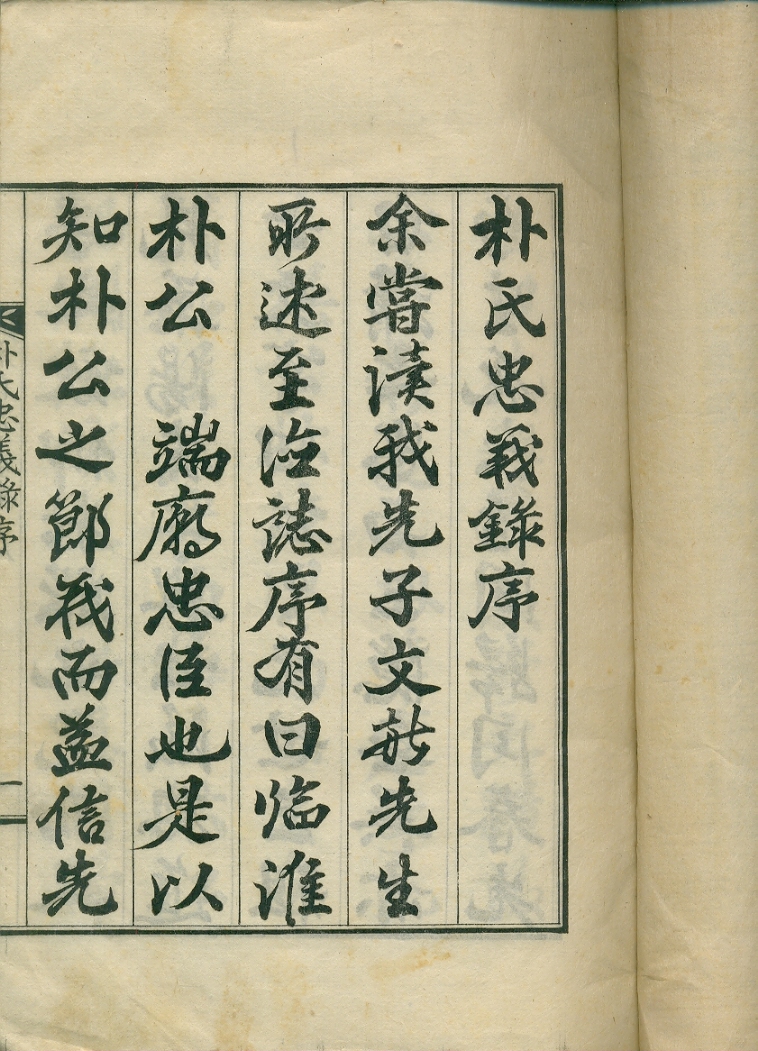 朴氏忠義錄序
余嘗讀我先子文先生
所述至德誌序有曰臨淮
朴公 端廟忠臣也是以
知朴公之節義而益信先
朴氏忠義錄序 一